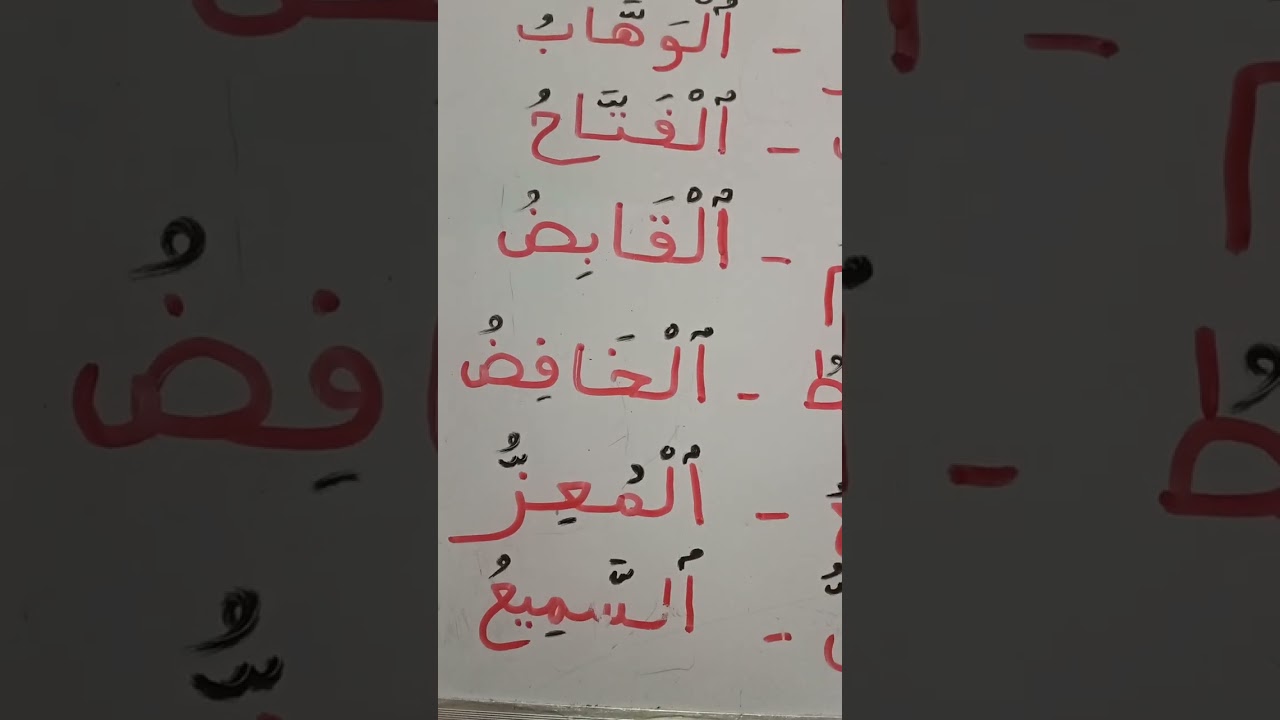 ٱلْوَهَّابُ -
ٱلْفَتَّاحُ -
ٱلْقَابِضُ -
طُ - ٱلْخَافِضُ
ٱلْمُعِزُّ -
ٱلسَّمِيعُ -